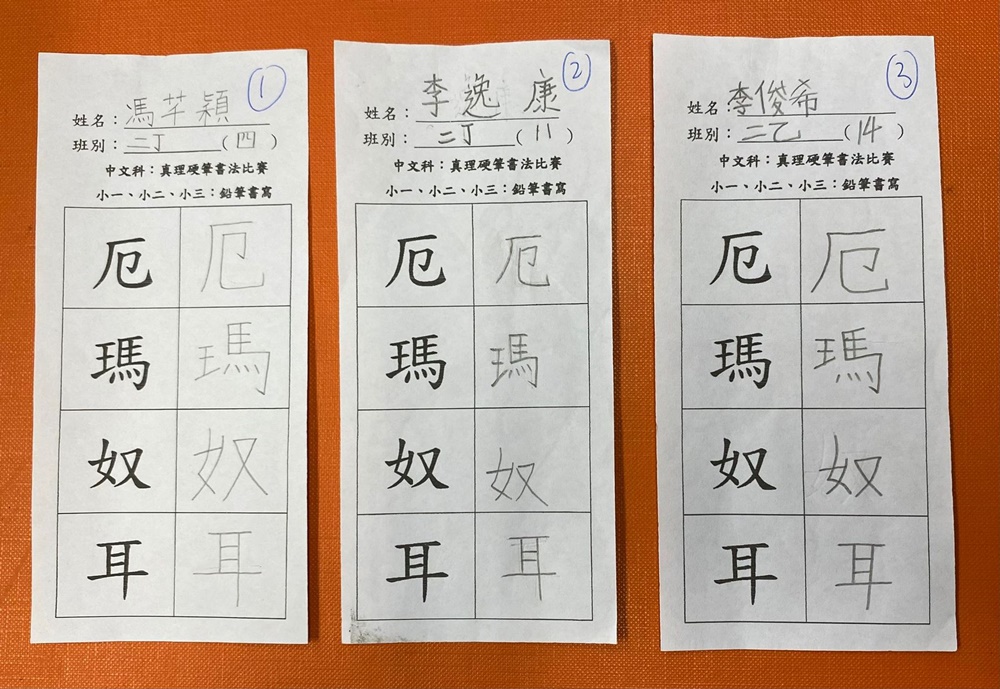 ①
姓名：馮芊穎
班別：二丁（四）
中文科：真理硬筆書法比賽
小一、小二、小三：鉛筆書寫
厄 厄
瑪 瑪
奴 奴
耳 耳
②
姓名：李逸康
班別：二丁（11）
中文科：真理硬筆書法比賽
小一、小二、小三：鉛筆書寫
厄 厄
瑪 瑪
奴 奴
耳 耳
③
姓名：李俊希
班別：二乙（14）
中文科：真理硬筆書法比賽
小一、小二、小三：鉛筆書寫
厄 厄
瑪 瑪
奴 奴
耳 耳